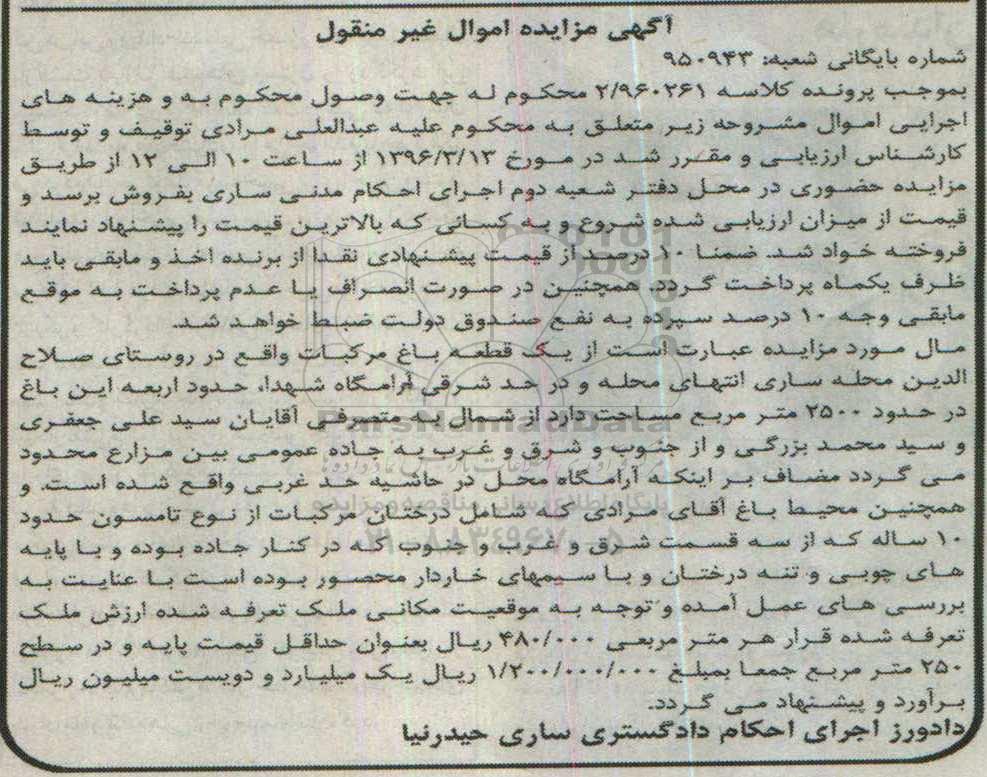 آگهی مزایده اموال غیر منقول
شماره بایگانی شعبه: ۹۵۰۹۴۳
بموجب پرونده کلاسه ۲/۹۶۰۲۶۱ محکوم له جهت وصول محکوم به و هزینه های
اجرایی اموال مشروحه زیر متعلق به محکوم علیه عبدالعلی مرادی توقیف و توسط
کارشناس ارزیابی و مقرر شد در مورخ ۱۳۹۶/۳/۱۳ از ساعت ۱۰ الی ۱۲ از طریق
مزایده حضوری در محل دفتر شعبه دوم اجرای احکام مدنی ساری بفروش برسد و
قیمت از میزان ارزیابی شده شروع و به کسانی که بالاترین قیمت را پیشنهاد نمایند
فروخته خواد شد. ضمنا ۱۰ درصد از قیمت پیشنهادی نقدا از برنده اخذ و مابقی باید
ظرف یکماه پرداخت گردد. همچنین در صورت انصراف یا عدم پرداخت به موقع
مابقی وجه ۱۰ درصد سپرده به نفع صندوق دولت ضبط خواهد شد.
مال مورد مزایده عبارت است از یک قطعه باغ مرکبات واقع در روستای صلاح
الدین محله ساری انتهای محله و در حد شرقی آرامگاه شهدا، حدود اربعه این باغ
در حدود ۲۵۰۰ متر مربع مساحت دارد از شمال به متصرفی آقایان سید علی جعفری
و سید محمد بزرگی و از جنوب و شرق و غرب به جاده عمومی بین مزارع محدود
می گردد مضاف بر اینکه آرامگاه محل در حاشیه حد غربی واقع شده است. و
همچنین محیط باغ آقای مرادی که شامل درختان مرکبات از نوع تامسون حدود
۱۰ ساله که از سه قسمت شرق و غرب و جنوب که در کنار جاده بوده و با پایه
های چوبی و تنه درختان و با سیمهای خاردار محصور بوده است با عنایت به
بررسی های عمل آمده و توجه به موقعیت مکانی ملک تعرفه شده ارزش ملک
تعرفه شده قرار هر متر مربعی ۴۸۰/۰۰۰ ریال بعنوان حداقل قیمت پایه و در سطح
۲۵۰ متر مربع جمعا بمبلغ ۱/۲۰۰/۰۰۰/۰۰۰ ریال یک میلیارد و دویست میلیون ریال
برآورد و پیشنهاد می گردد.
دادورز اجرای احکام دادگستری ساری حیدرنیا
ParsNamadData
پایگاه اطلاع رسانی مناقصه و مزایده